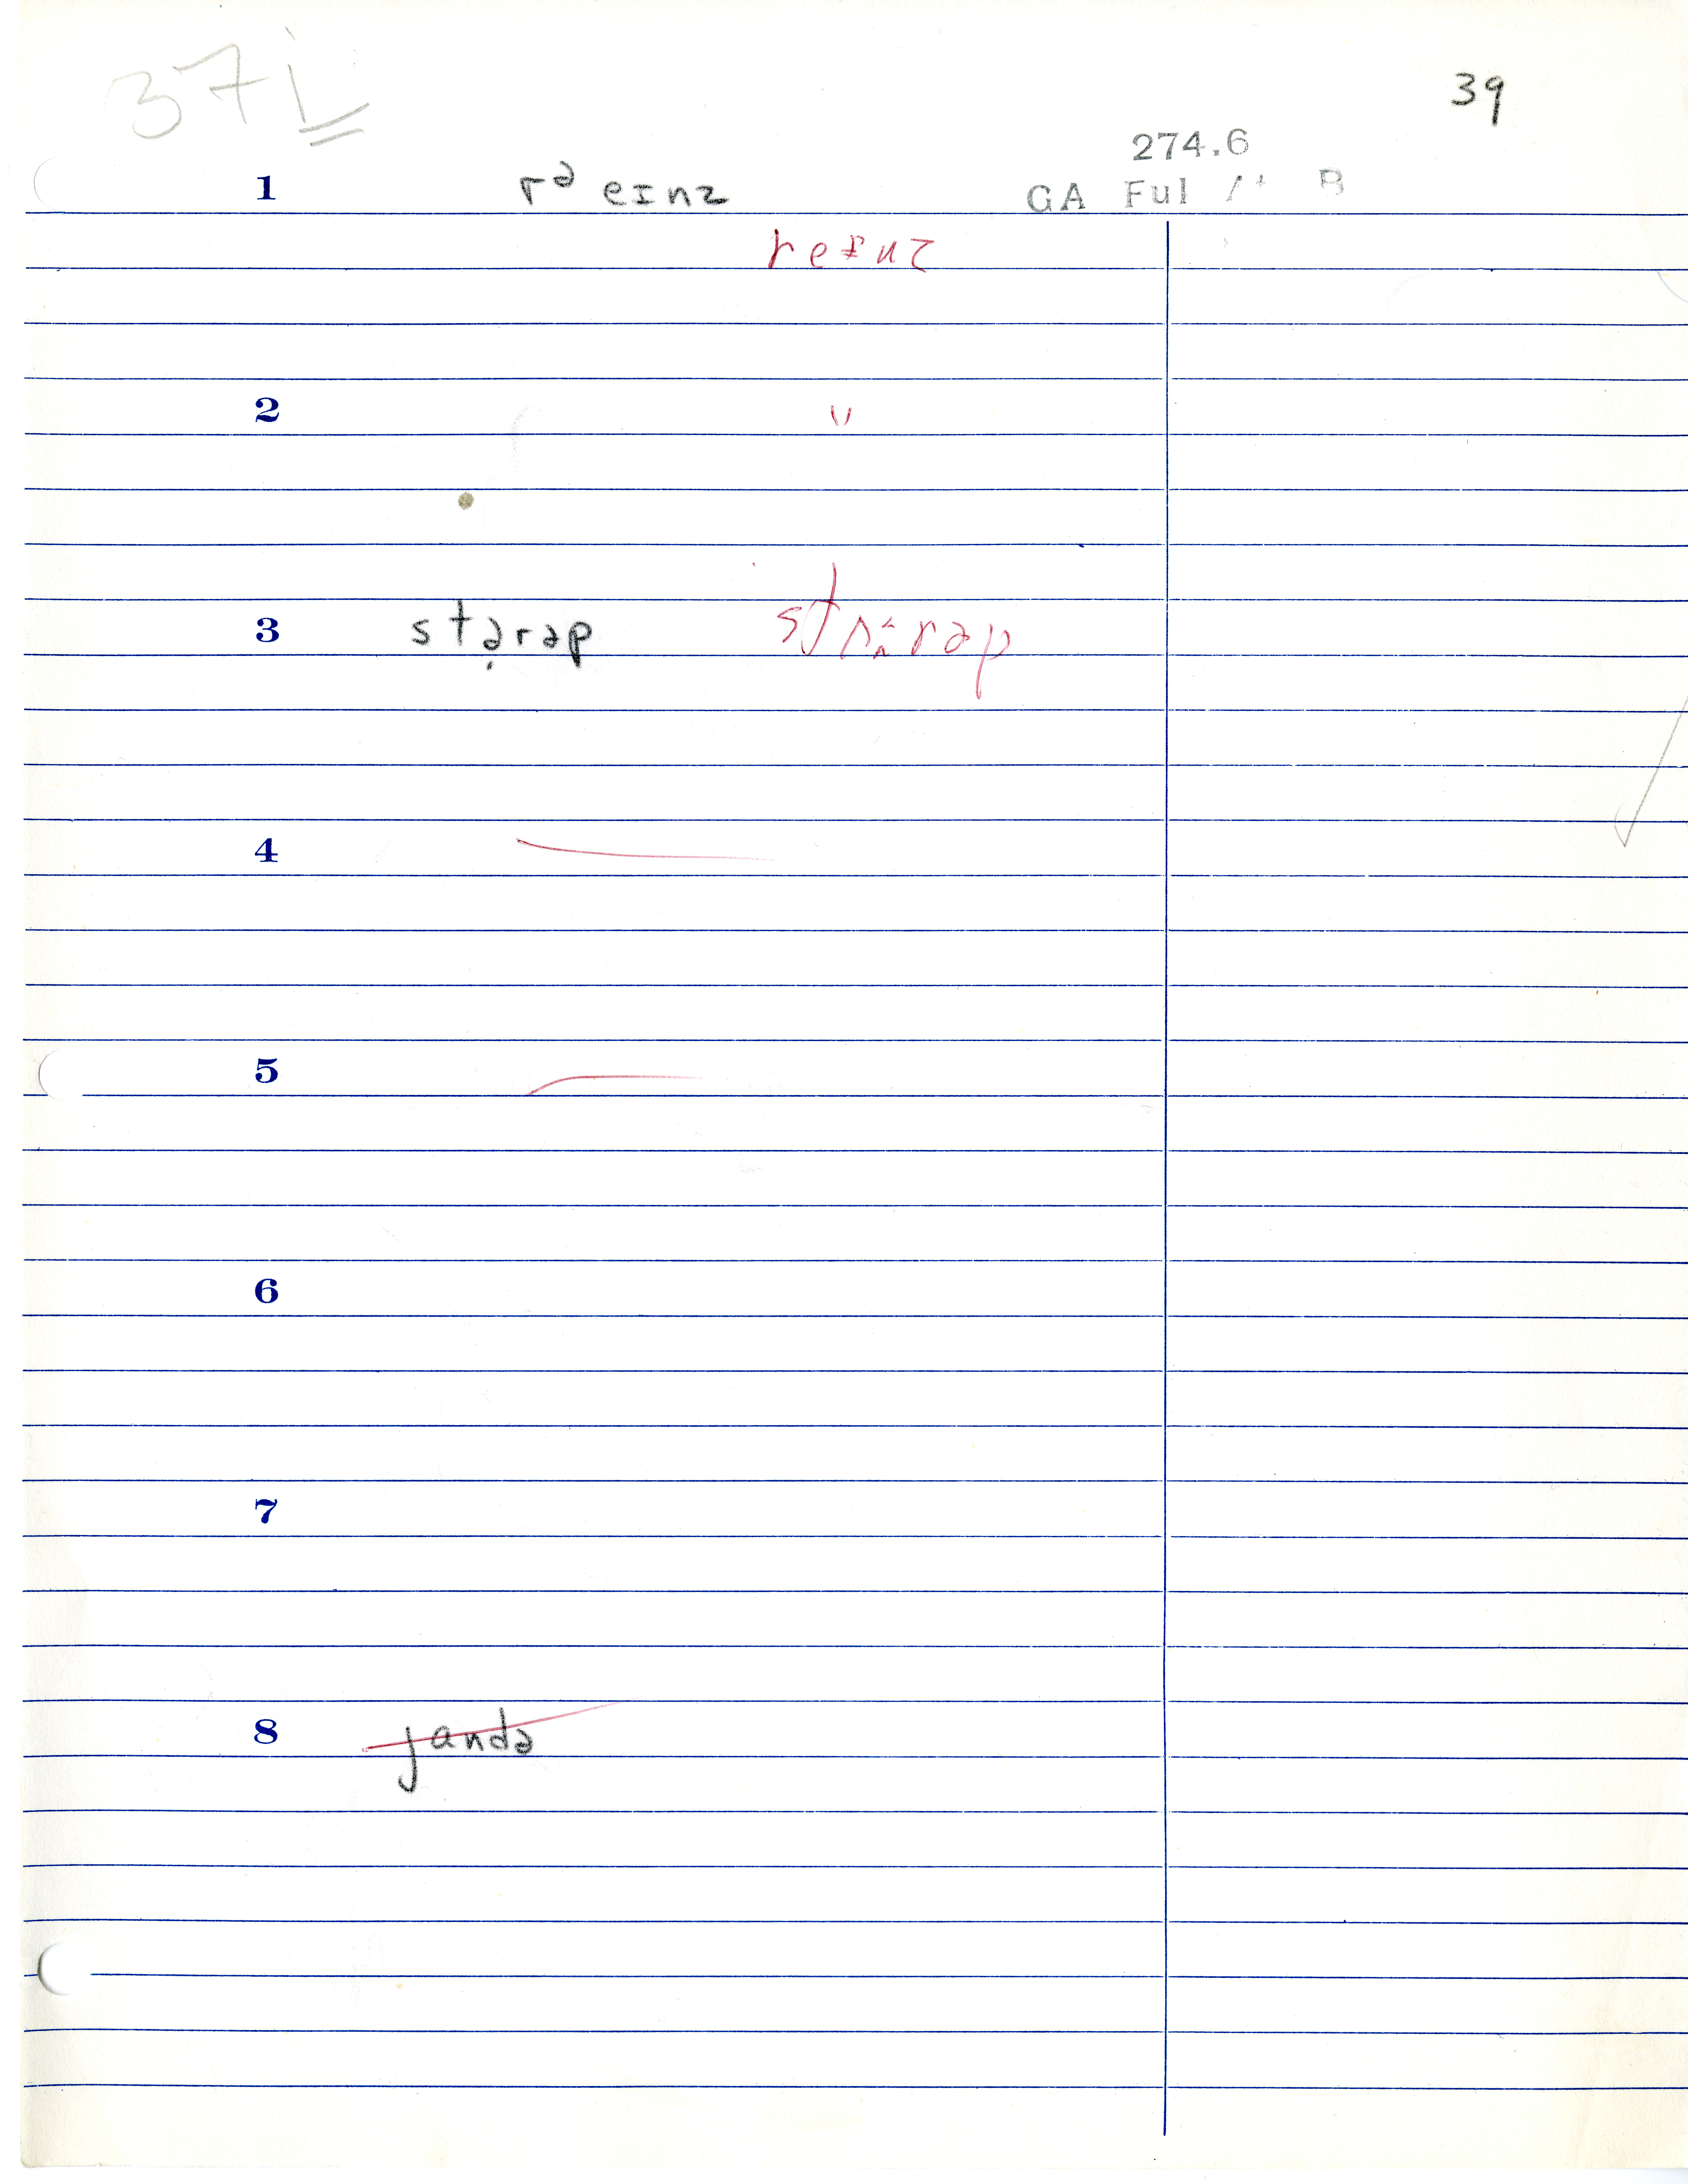 37i
39
274.6
1 rᵊ eɪnz GA Ful
reɪnz
2 "
3 stə̣rəp
4
5
6
7
8 jandə